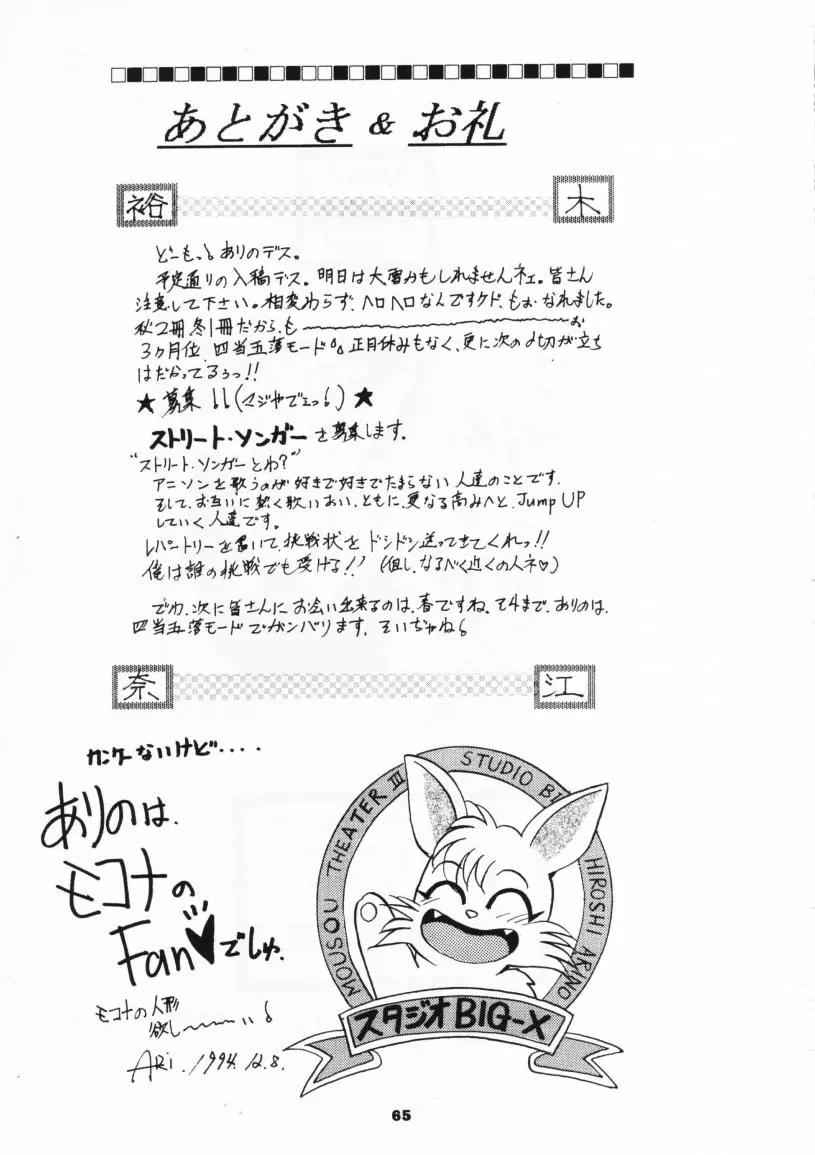 あとがき & お礼
裕 木
どーもっ! ありのデス。
予定通りの入稿デス。明日は大雪かもしれませんネェ。皆さん
注意して下さい。相変わらず、ヘロヘロなんですケド、もぉ、なれました。
秋2冊冬1冊だから、も〜〜〜〜〜〜〜〜お
3ヶ月位、四当五落モード。正月休みもなく、更に次の〆切が立ち
はだかってるぅっ!!
★募集!!(マジやでェっ!)★
ストリート・ソンガーを募集します。
"ストリート・ソンガーとわ?"
アニソンを歌うのが好きで好きでたまらない人達のことです。
そして、お互いに熱く歌いあい、ともに、更なる高みへと、Jump UP
していく人達です。
レパートリーを書いて、挑戦状をドシドシ送ってきてくれっ!!
俺は誰の挑戦でも受ける!! (但し、なるべく近くの人ネ♡)
でわ、次に皆さんにお会い出来るのは、春ですね。それまで、ありのは、
四当五落モードでガンバります。そいぢゃね!
奈 江
カンケーないけど‥‥
ありのは、
モコナの
Fan♥でしゅ。
モコナの人形
欲し〜〜〜い!
ARI. 1994. 12. 8.
MOUSOU THEATER III
STUDIO BI
HIROSHI ARINO
スタジオBIG-X
65